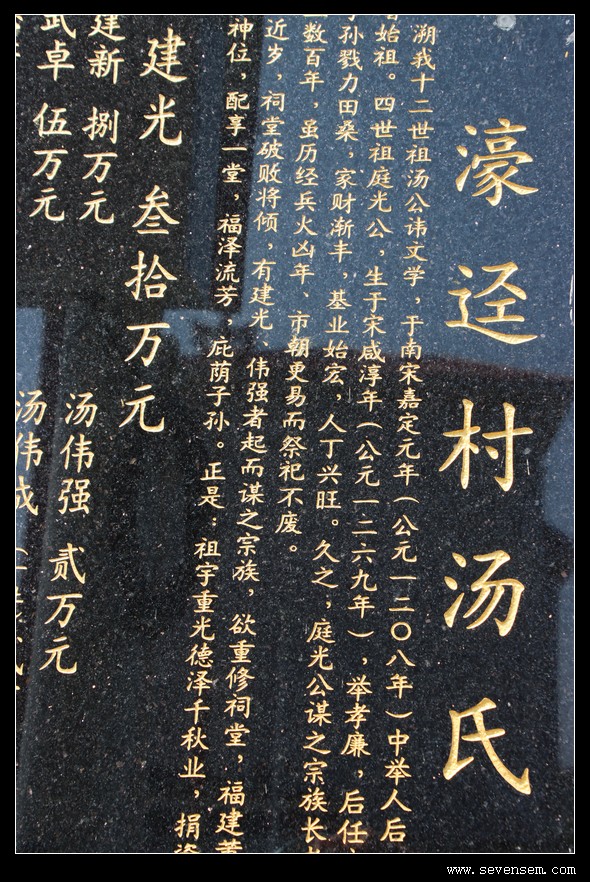 濠迳村汤氏
溯我十二世祖汤公讳文学，于南宋嘉定元年（公元一二〇八年）中举人后
始祖。四世祖庭光公，生于宋咸淳年（公元一二六九年），举孝廉，后任
子孙戮力田桑，家财渐丰，基业始宏，人丁兴旺。久之，庭光公谋之宗族长
数百年，虽历经兵火凶年、市朝更易而祭祀不废。
近岁，祠堂破败将倾，有建光、伟强者起而谋之宗族，欲重修祠堂，福建
神位，配享一堂，福泽流芳，庇荫子孙。正是：祖宇重光德泽千秋业，捐
建光 叁拾万元
建新 捌万元 汤伟强 贰万元
武卓 伍万元 汤伟成
www.sevensem.com